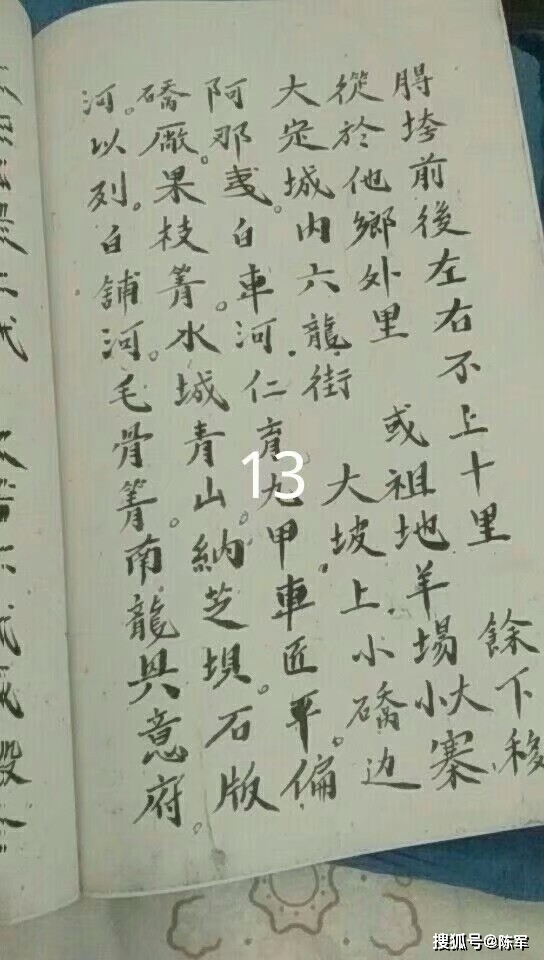 垮前後左右不上十里 餘下移
從於他鄉外里 或祖地羊場小大寨
大定城内六龍街 大坡上.小礄边
阿那戛。白車河.仁育九甲.車匠平。偏
礄厰。果枝箐。水城青山.納芝垻。石版
河。以列。白舖河。毛骨箐。南龍興意府。
13
搜狐号@陈军